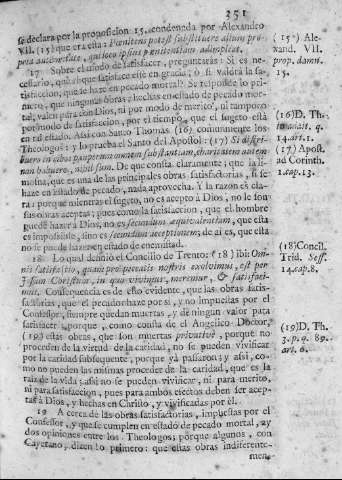 351
se declara por la proposicion 15. condenada por Alexandro
VII. (15) que era esta: Pœnitens potest substituere alium pro-
pria authoritate, qui loco ipsius pœnitentiam adimpleat.
17 Sobre el modo de satisfacer, preguntarás: Si es ne-
cessario, que lo que satisface esté en gracia; ò si valdrà la sa-
tisfaccion, que se hace en pecado mortal? Se responde lo pri-
mero, que ningunas obras, hechas en estado de pecado mor-
tal, valen para con Dios, ni por modo de merito, ni tampoco
por modo de satisfaccion, por el tiempo que el sugeto està
en tal estado. Assi con Santo Thomàs (16) comunmente los
Theologos: y lo prueba el Santo del Apostol: (17) Si distri-
buero in cibos pauperum omnem substantiam, charitatem autem
non habuero, nihil sum. De que consta claramente, que la li-
mosna, que es una de las principales obras satisfactorias, si se
hace en estado de pecado, nada aprovecha. Y la razon es cla-
ra: porque mientras el sugeto, no es acepto à Dios, no le son
sus obras aceptas; pues como la satisfaccion, que el hombre
puede hazer à Dios, no es secundum æquivalentiam, que esta
es impossible, sino es secundum acceptationem; de aì es, que esta
no se puede hazer en estado de enemistad.
18 Lo qual definiò el Concilio de Trento: (18) ibi: Om-
nis satisfactio, quam pro peccatis nostris exolvimus, est per
Jesum Christum, in quo vivimus, meremur, & satisfaci-
mus. Consequencia es de esto evidente, que las obras satis-
factorias, que el pecador hace por sì, y no impuestas por el
Confessor, siempre quedan muertas, y de ningun valor para
satisfacer: porque, como consta de el Angelico Doctor,
(19) estas obras, que son muertas privativè, porque no
proceden de la virtud de la caridad, no se pueden vivificar
por la caridad subsequente, porque yà passaron; y assi, co-
mo no pueden las mismas proceder de la caridad, que es la
raìz de la vida; assi no se pueden vivificar, ni para merito,
ni para satisfaccion, pues para ambos efectos deben ser acep-
tas à Dios, y hechas en Christo, y vivificadas por èl.
19 A cerca de las obras satisfactorias, impuestas por el
Confessor, y que se cumplen en estado de pecado mortal, ay
dos opiniones entre los Theologos; porque algunos, con
Cayetano, dicen lo primero: que estas obras indiferente-
men-
(15) Ale-
xand. VII.
prop. damn.
15.
(16) D. Th.
q.
14. art. 1.
(17) Apost.
ad Corinth.
1. cap. 13.
(18) Concil.
Trid. Sess.
14. cap. 8.
(19) D. Th.
3. p. q. 89.
art. 6.